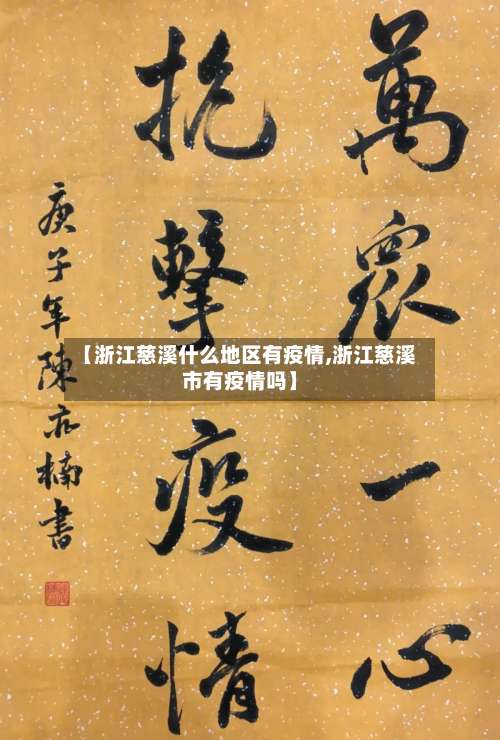 萬眾一心
抗擊疫情
庚子年陳亦楠書
【浙江慈溪什么地区有疫情,浙江慈溪
市有疫情吗】